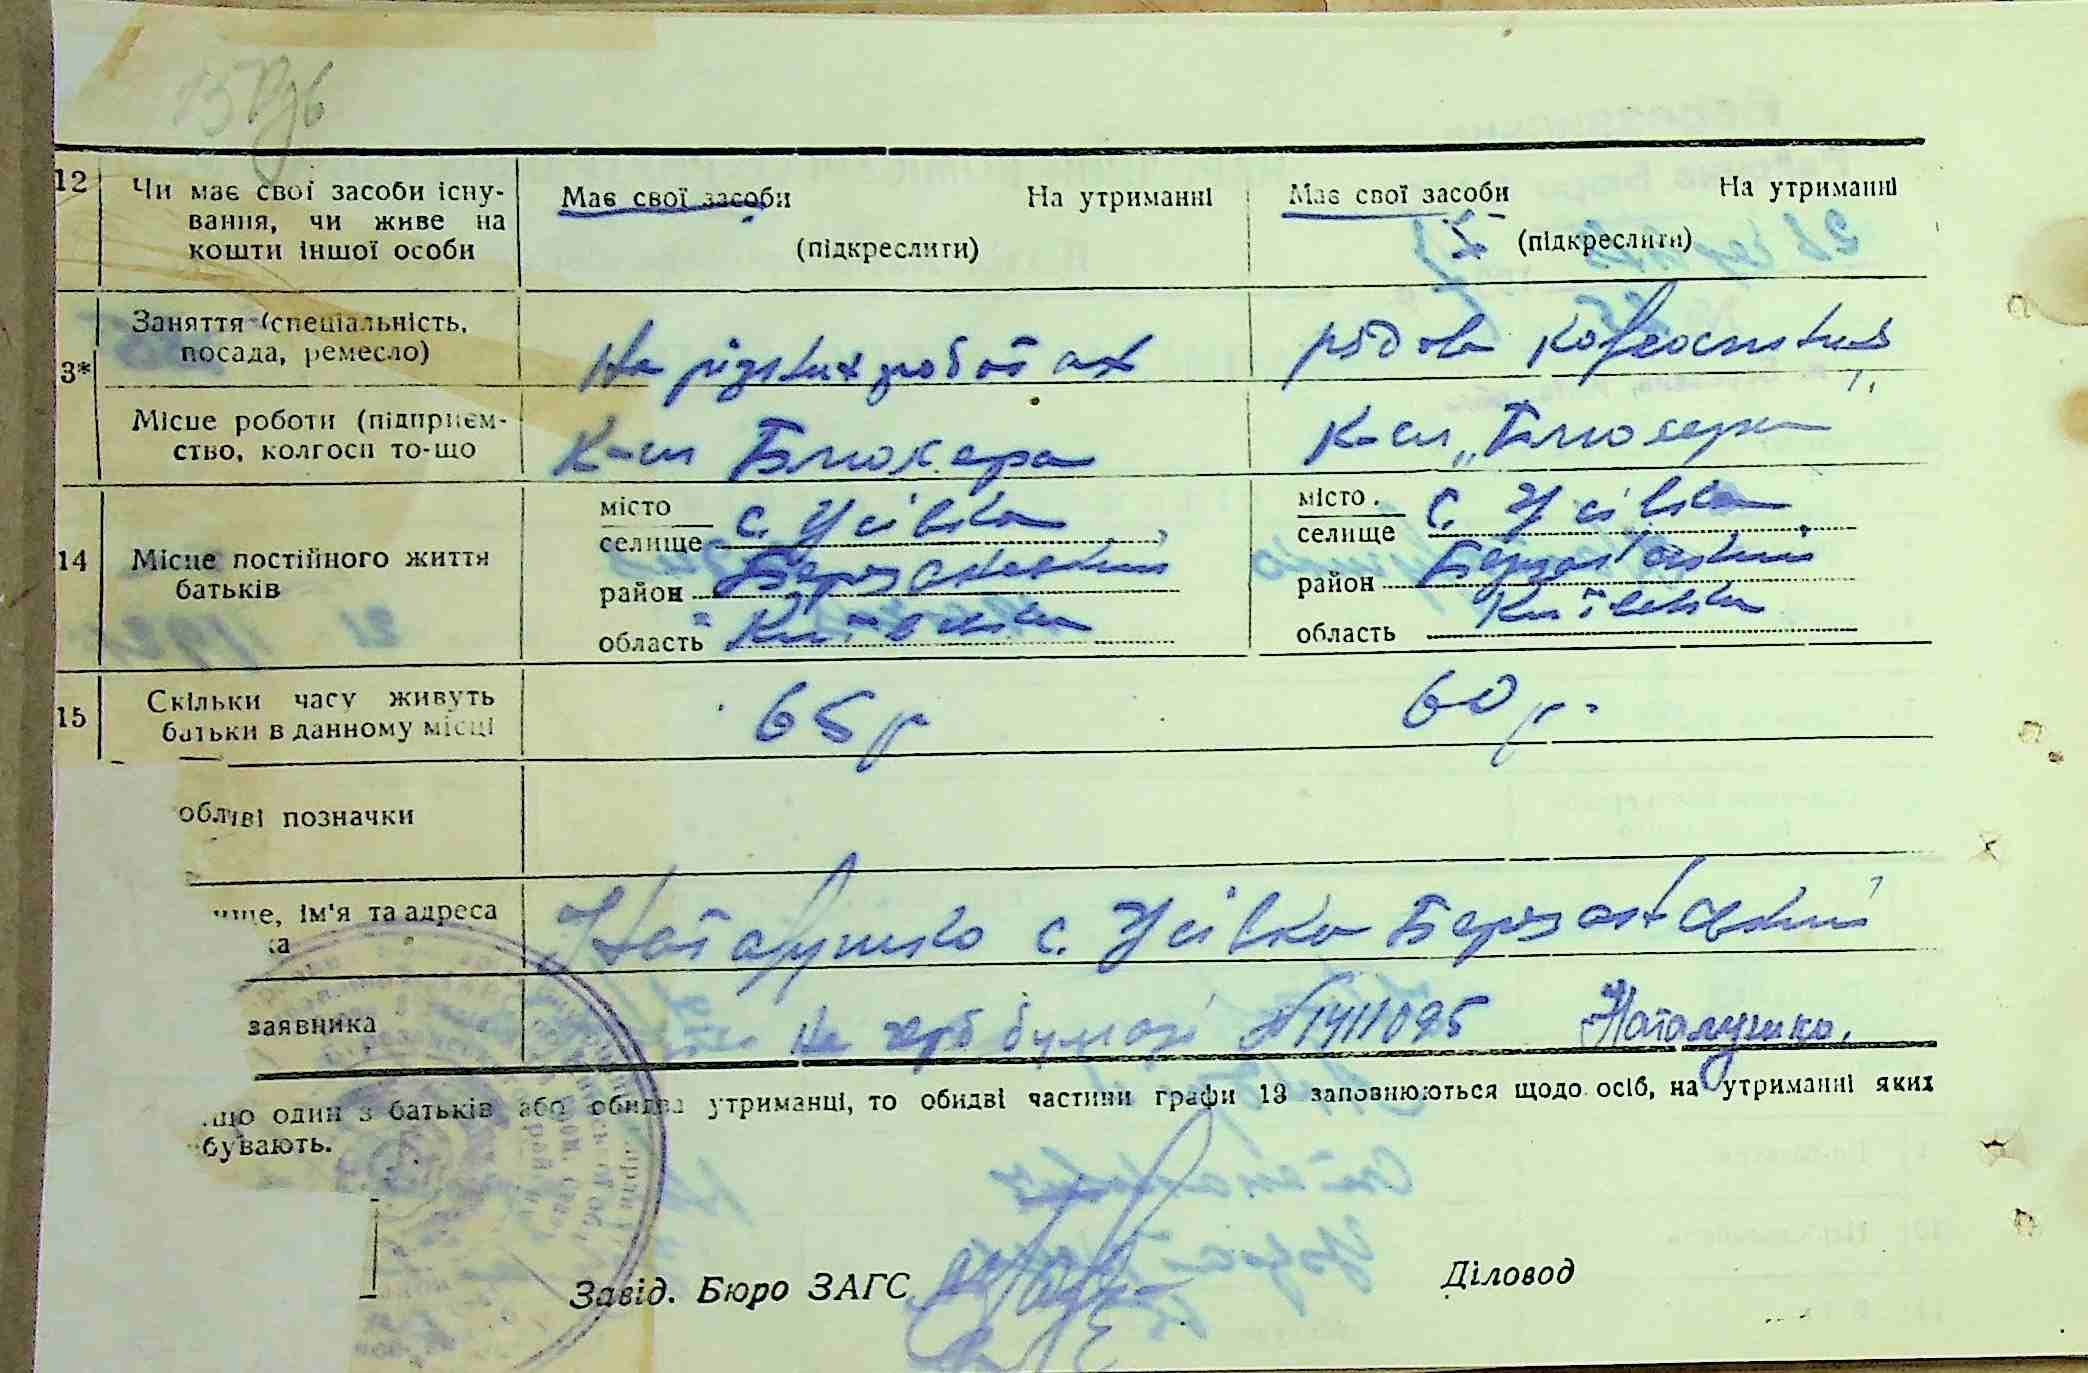 12 Чи має свої засоби існу- Має свої засоби На утриманні Має свої засоби На утриманні
вання, чи живе на
кошти іншої особи (підкреслити) (підкреслити)
Заняття (спеціальність, На різних роботах рядова колгоспниця
посада, ремесло)
3*
Місце роботи (підприєм- К-сп Блюхера К-сп „Блюхера
ство, колгосп то-що
місто с. Усівка місто с. Усівка
селище селище
14 Місце постійного життя район Березанський район Березанський
батьків
область Київська область Київська
15 Скільки часу живуть 65 р 60 р.
батьки в данному місці
обливі позначки
ище, ім'я та адреса Наталушко с. Усівка Березанський
ка
заявника на герб бумазі №1411095 Наталушко.
що один з батьків або обидва утриманці, то обидві частини графи 13 заповнюються щодо осіб, на утриманні яких
бувають.
Завід. Бюро ЗАГС Діловод